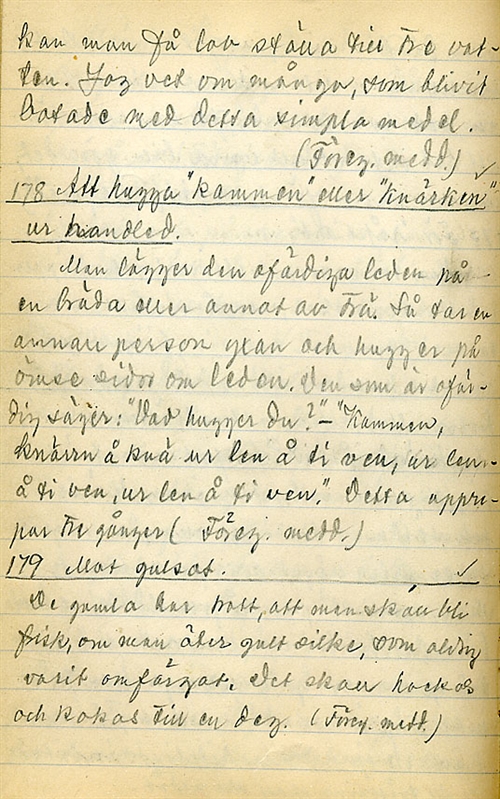 kan man få lov ställa till tre vat-
ten. Jag vet om många, som blivit
botade med detta simpla medel.
(Föreg. medd.)
178 Att hugga "kammen" eller "knärken"
ur handled.
Man lägger den ofärdiga leden på
en bräda eller annat av trä. Så tar en
annan person yxan och hugger på
ömse sidor om leden. Den som är ofär-
dig säger: "Vad hugger du?" – "Kammen,
knärrn å knä ur len å ti ven, ur len
å ti ven, ur len å ti ven." Detta uppre-
par tre gånger (Föreg. medd.)
179 Mot gulsot.
De gamla har trott, att man skall bli
frisk, om man äter gult silke, som aldrig
varit omfärgat. Det skall hackas
och kokas till en deg. (Föreg. medd.)